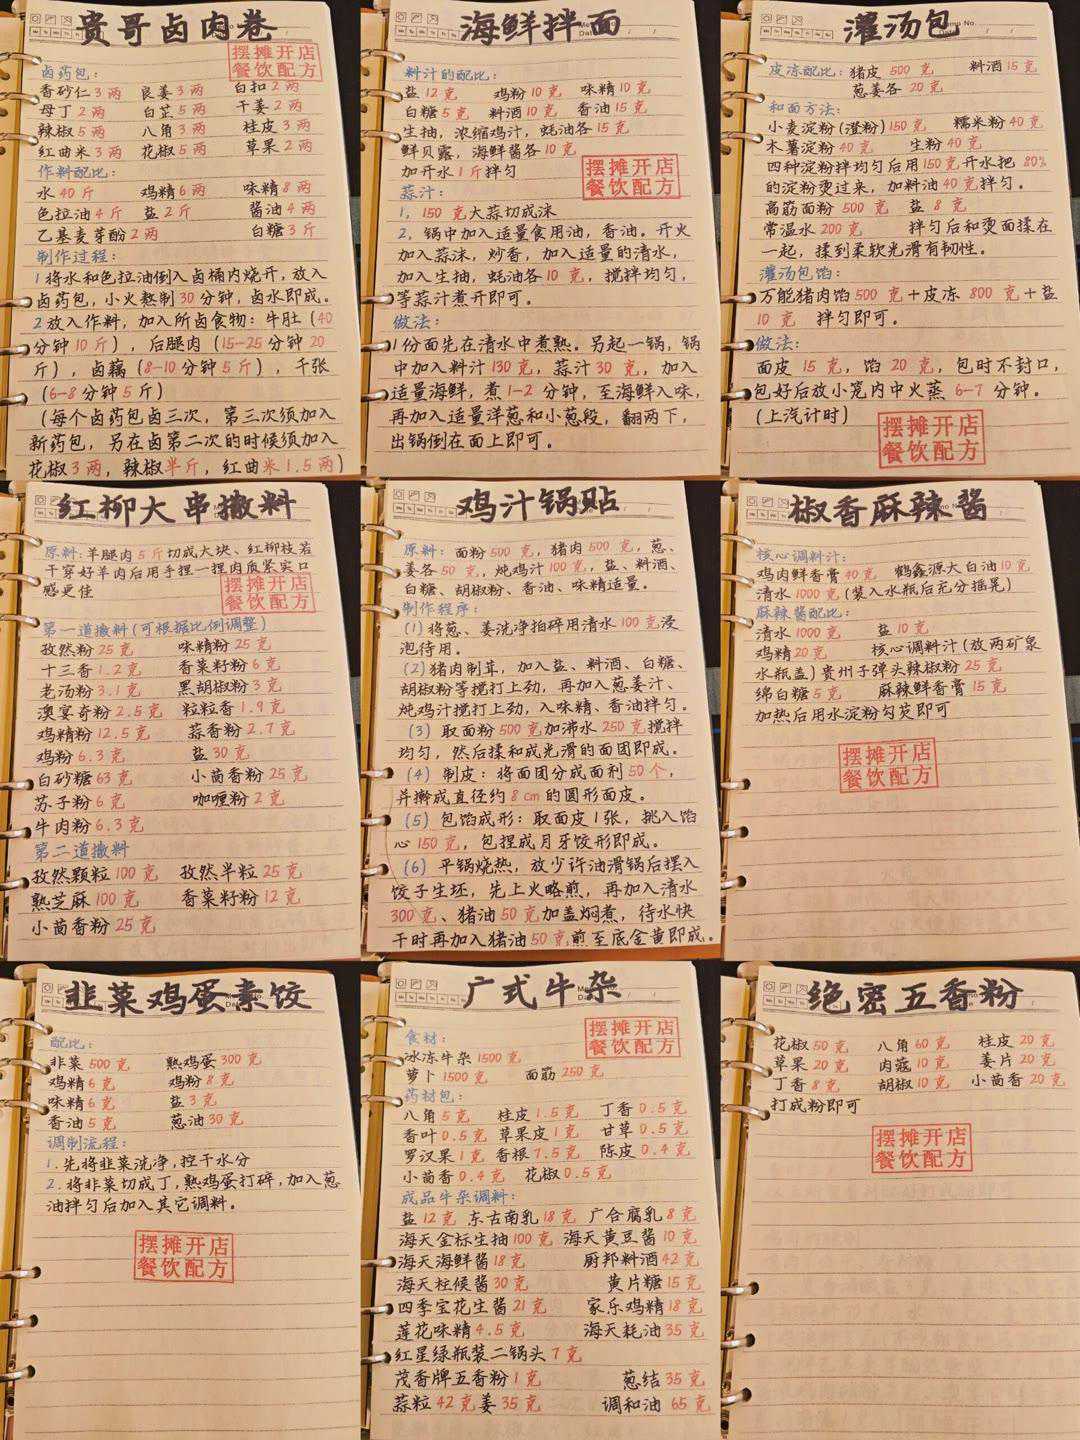 贵哥卤肉卷
摆摊开店
餐饮配方
卤药包:
香砂仁3两 良姜3两 白扣2两
母丁2两 白芷5两 干姜2两
辣椒5两 八角3两 桂皮3两
红曲米3两 花椒5两 草果2两
作料配比:
水40斤 鸡精6两 味精8两
色拉油4斤 盐2斤 酱油4两
乙基麦芽酚2两 白糖3斤
制作过程:
1将水和色拉油倒入卤桶内烧开,放入
卤药包,小火熬制30分钟,卤水即成。
2放入作料,加入所卤食物:牛肚(40
分钟10斤),后腿肉(15-25分钟20
斤),卤藕(8-10分钟5斤),千张
(6-8分钟5斤)
(每个卤药包卤三次,第三次须加入
新药包,另在卤第二次的时候须加入
花椒3两,辣椒半斤,红曲米1.5两)
海鲜拌面
料汁的配比:
盐12克 鸡粉10克 味精10克
白糖5克 料酒10克 香油15克
生抽,浓缩鸡汁,蚝油各15克
鲜贝露,海鲜酱各10克
加开水1斤拌匀
摆摊开店
餐饮配方
蒜汁:
1,150克大蒜切成沫
2,锅中加入适量食用油,香油。开火
加入蒜沫,炒香,加入适量的清水,
加入生抽,蚝油各10克,搅拌均匀,
等蒜汁煮开即可。
做法:
1份面先在清水中煮熟。另起一锅,锅
中加入料汁130克,蒜汁30克,加入
适量海鲜,煮1-2分钟,至海鲜入味,
再加入适量洋葱和小葱段,翻两下,
出锅倒在面上即可。
灌汤包
皮冻配比:猪皮500克 料酒15克
葱姜各20克
和面方法:
小麦淀粉(澄粉)150克 糯米粉40克
木薯淀粉40克 生粉40克
四种淀粉拌均匀后用150克开水把80%
的淀粉烫过来,加料油40克拌匀。
高筋面粉500克 盐8克
常温水200克 拌匀后和烫面揉在
一起,揉到柔软光滑有韧性。
灌汤包馅:
万能猪肉馅500克+皮冻800克+盐
10克 拌匀即可。
做法:
面皮15克,馅20克,包时不封口,
包好后放小笼内中火蒸6-7分钟。
(上汽计时)
摆摊开店
餐饮配方
红柳大串撒料
原料:羊腿肉5斤切成大块、红柳枝若
干穿好羊肉后用手捏一捏肉质紧实口
感更佳
摆摊开店
餐饮配方
第一道撒料(可根据比例调整)
孜然粉25克 味精粉25克
十三香1.2克 香菜籽粉6克
老汤粉3.1克 黑胡椒粉3克
澳宴奇粉2.5克 粒粒香1.9克
鸡精粉12.5克 蒜香粉2.7克
鸡粉6.3克 盐30克
白砂糖63克 小茴香粉25克
苏子粉6克 咖喱粉2克
牛肉粉6.3克
第二道撒料
孜然颗粒100克 孜然半粒25克
熟芝麻100克 香菜籽粉12克
小茴香粉25克
鸡汁锅贴
原料:面粉500克,猪肉500克,葱、
姜各50克,炖鸡汁100克,盐、料酒、
白糖、胡椒粉、香油、味精适量。
制作程序:
(1)将葱、姜洗净拍碎用清水100克浸
泡待用。
(2)猪肉制茸,加入盐、料酒、白糖、
胡椒粉等搅打上劲,再加入葱姜汁、
炖鸡汁搅打上劲,入味精、香油拌匀。
(3)取面粉500克加沸水250克搅拌
均匀,然后揉和成光滑的面团即成。
(4)制皮:将面团分成面剂50个,
并擀成直径约8cm的圆形面皮。
(5)包馅成形:取面皮1张,挑入馅
心150克,包捏成月牙饺形即成。
(6)平锅烧热,放少许油滑锅后摆入
饺子生坯,先上火略煎,再加入清水
300克、猪油50克加盖焖煮,待水快
干时再加入猪油50克煎至底金黄即成。
椒香麻辣酱
核心调料汁:
鸡肉鲜香膏40克 鹤鑫源大白油10克
清水1000克(装入水瓶后充分摇晃)
麻辣酱配比:
清水1000克 盐10克
鸡精20克 核心调料汁(放两矿泉
水瓶盖)贵州子弹头辣椒粉25克
绵白糖5克 麻辣鲜香膏15克
加热后用水淀粉勾芡即可
摆摊开店
餐饮配方
韭菜鸡蛋素饺
配比:
韭菜500克 熟鸡蛋300克
鸡精6克 鸡粉8克
味精6克 盐3克
香油5克 葱油30克
调制流程:
1.先将韭菜洗净,控干水分
2.将韭菜切成丁,熟鸡蛋打碎,加入葱
油拌匀后加入其它调料。
摆摊开店
餐饮配方
广式牛杂
食材:
冰冻牛杂1500克
萝卜1500克 面筋250克
摆摊开店
餐饮配方
药材包:
八角5克 桂皮1.5克 丁香0.5克
香叶0.5克 草果皮1克 甘草0.5克
罗汉果1克 香根7.5克 陈皮0.4克
小茴香0.4克 花椒0.5克
成品牛杂调料:
盐12克 东古南乳18克 广合腐乳8克
海天金标生抽100克 海天黄豆酱10克
海天海鲜酱18克 厨邦料酒42克
海天柱候酱30克 黄片糖15克
四季宝花生酱21克 家乐鸡精18克
莲花味精4.5克 海天耗油35克
红星绿瓶装二锅头7克
茂香牌五香粉1克 葱结35克
蒜粒42克姜35克 调和油65克
绝密五香粉
花椒50克 八角60克 桂皮20克
草果20克 肉蔻10克 姜片20克
丁香8克 胡椒10克 小茴香20克
打成粉即可
摆摊开店
餐饮配方